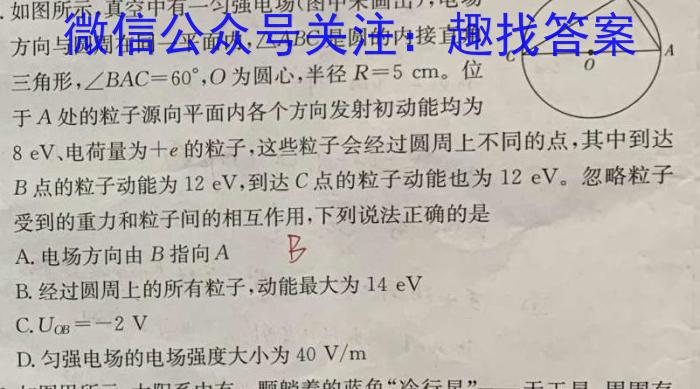 .如图所示,真空中有一匀强电场(图中未画出),电场
方向与圆周在同一平面内,△ABC是圆的内接直角
微信公众号关注：趣找答案
三角形,∠BAC=60°,O为圆心,半径R=5 cm。位
C O A
于A处的粒子源向平面内各个方向发射初动能均为
8 eV、电荷量为+e的粒子,这些粒子会经过圆周上不同的点,其中到达
B点的粒子动能为12 eV,到达C点的粒子动能也为12 eV。忽略粒子
受到的重力和粒子间的相互作用,下列说法正确的是
A. 电场方向由B指向A B
B. 经过圆周上的所有粒子,动能最大为14 eV
C. U_OB=-2 V
D. 匀强电场的电场强度大小为40 V/m